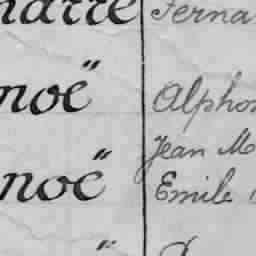 natte Ferna
noë" Alphon
Jean M
noë" Emile
"